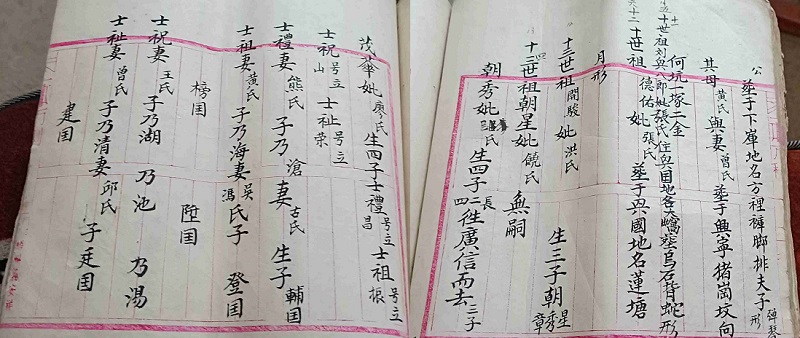 公葬于下庫地名方裡褲脚排夫子形弹琴
其母黃氏與妻曾氏葬于興寧猪崗坟向
何坑一塚二金
十二世祖刘與八郎妣張氏住與囯地名大嶠葬烏石背蛇形
十世祖德佑妣張氏葬于興國地名蓮塘
月形
十三世祖問駿妣洪氏生三子朝星秀章
十三世祖朝星妣饒氏無嗣
朝秀妣氏生四子長二四徃廣信而去三子
茂華妣廖氏生四子士禮号立昌士祖号立振
士祝号立山士祉号立荣
士禮妻熊氏子乃滄妻古氏生子輔囯
士祖妻黃氏子乃海妻吴馮氏子登囯
榜囯 陞囯
士祝妻王氏子乃湖 乃池 乃湯
士祉妻曾氏子乃清妻邱氏子廷囯
建囯